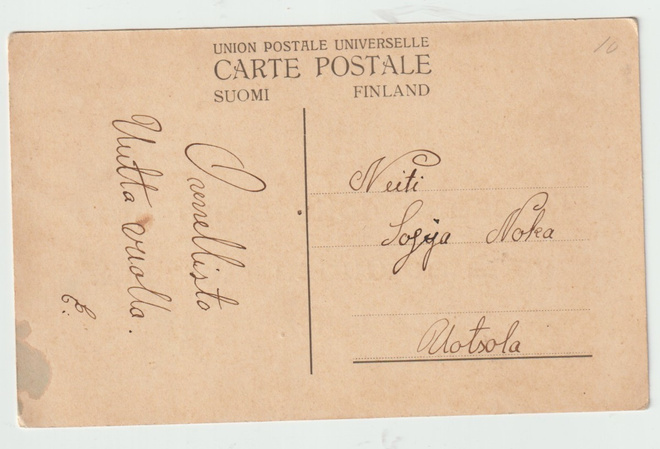 UNION POSTALE UNIVERSELLE
CARTE POSTALE
SUOMI FINLAND
10
Onnellista
Uutta vuotta.
E.
Neiti
Sofija Noka
Uotsola